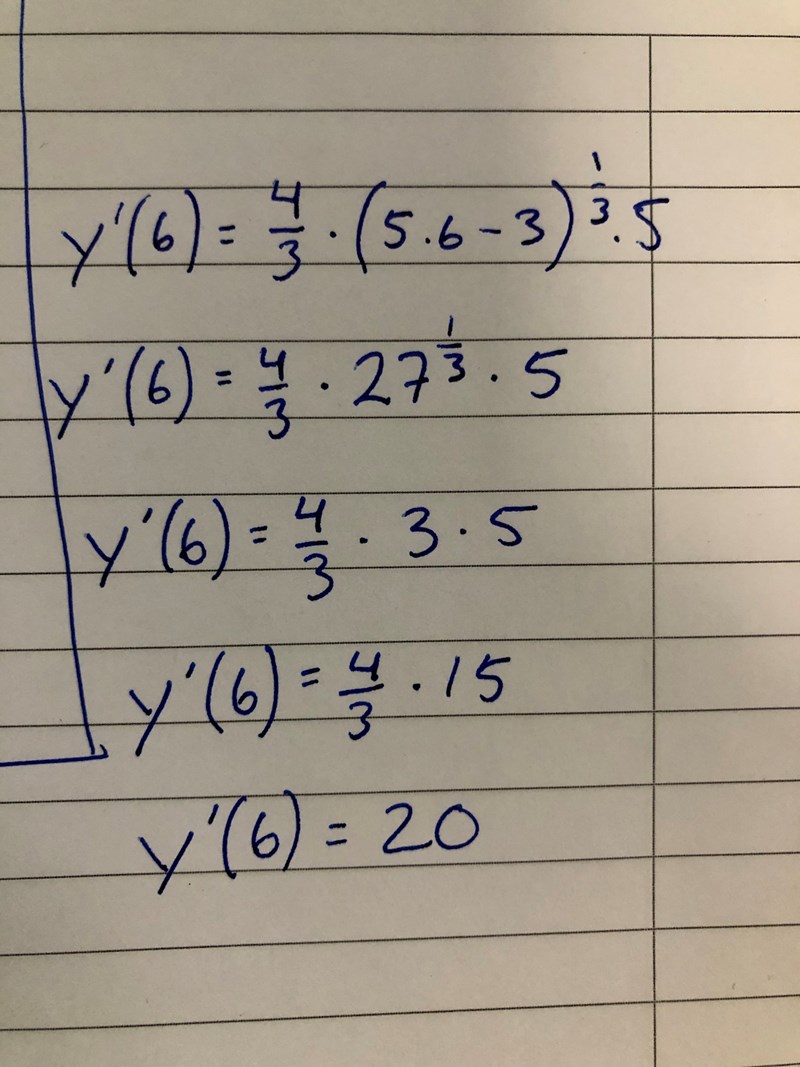 y'(6) = 4/3 · (5·6 − 3)^(1/3) · 5
y'(6) = 4/3 · 27^(1/3) · 5
y'(6) = 4/3 · 3 · 5
y'(6) = 4/3 · 15
y'(6) = 20